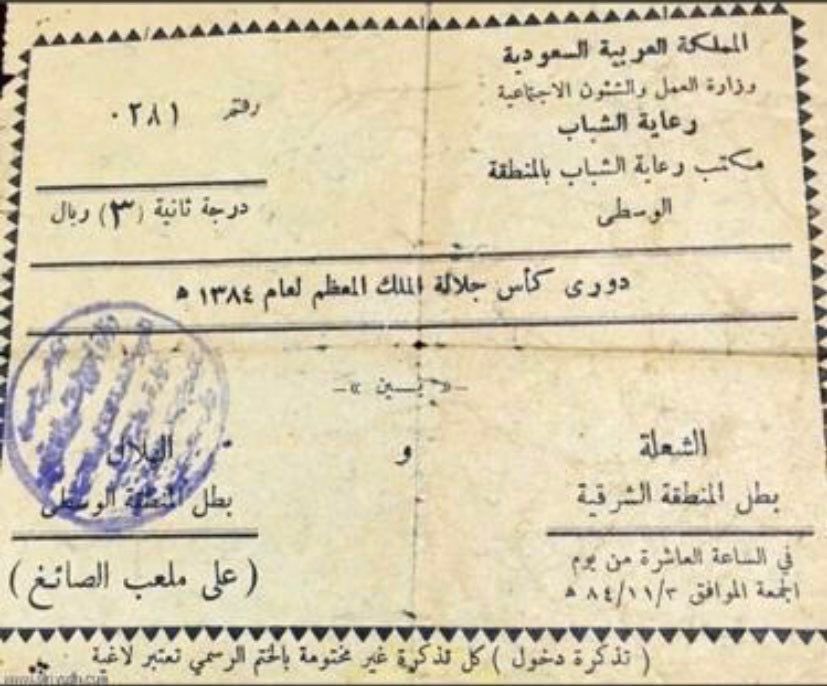 المملكة العربية السعودية
وزارة العمل والشئون الاجتماعية
رعاية الشباب
مكتب رعاية الشباب بالمنطقة
الوسطى
رقم ٠٢٨١
درجة ثانية (٣) ريال
دورى كأس جلالة الملك المعظم لعام ١٣٨٤ ه
—« بين »—
الشعلة و الهلال
بطل المنطقة الشرقية
بطل المنطقة الوسطى
في الساعة العاشرة من يوم
الجمعة الموافق ٨٤/١١/٣ ه
(على ملعب الصائغ)
( تذكرة دخول ) كل تذكرة غير مختومة بالختم الرسمي تعتبر لاغية